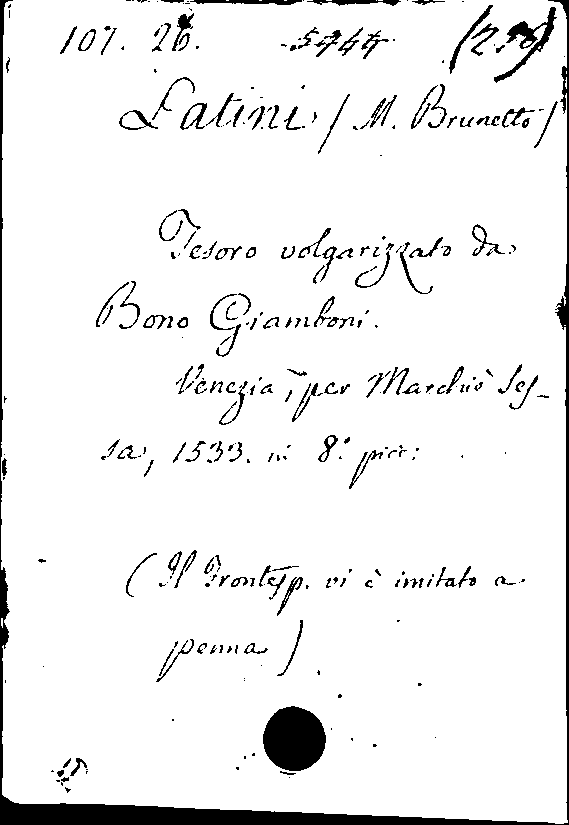 107. 26. 5744
Latini (M. Brunetto)
Tesoro volgarizzato da
Bono Giamboni.
Venezia, per Marchiò Ses-
sa, 1533. in 8.° picc:
(Il Frontesp. vi è imitato a
penna)